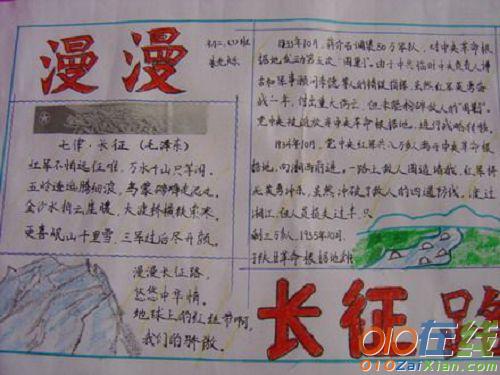 漫漫
七律·长征(毛泽东)
红军不怕远征难,万水千山只等闲。
五岭逶迤腾细浪,乌蒙磅礴走泥丸。
金沙水拍云崖暖,大渡桥横铁索寒。
更喜岷山千里雪,三军过后尽开颜。
漫漫长征路,
悠悠中华情。
地球上的红
我们的骄傲。
1933年10月,蒋介石调集50万军队,对中央革命根
据地发动第五次"围剿"。由于中共临时中央负责人博
古和军事顾问李德等人的错误指挥,虽然红军英勇奋
战一年,付出重大伤亡,但未能粉碎敌人的"围剿",
党中央被迫放弃中央革命根据地,进行战略转移。
1934年10月,党中央红军共八万多人
向湘西前进。一路上敌人围追堵截,红军将
士英勇冲杀,虽然冲破了敌人的四道防线,渡过
湘江,但人员损失过半,只
剩三万多人。1935年10月,
革命根据地
长征路
010在线
010ZaiXian.Com